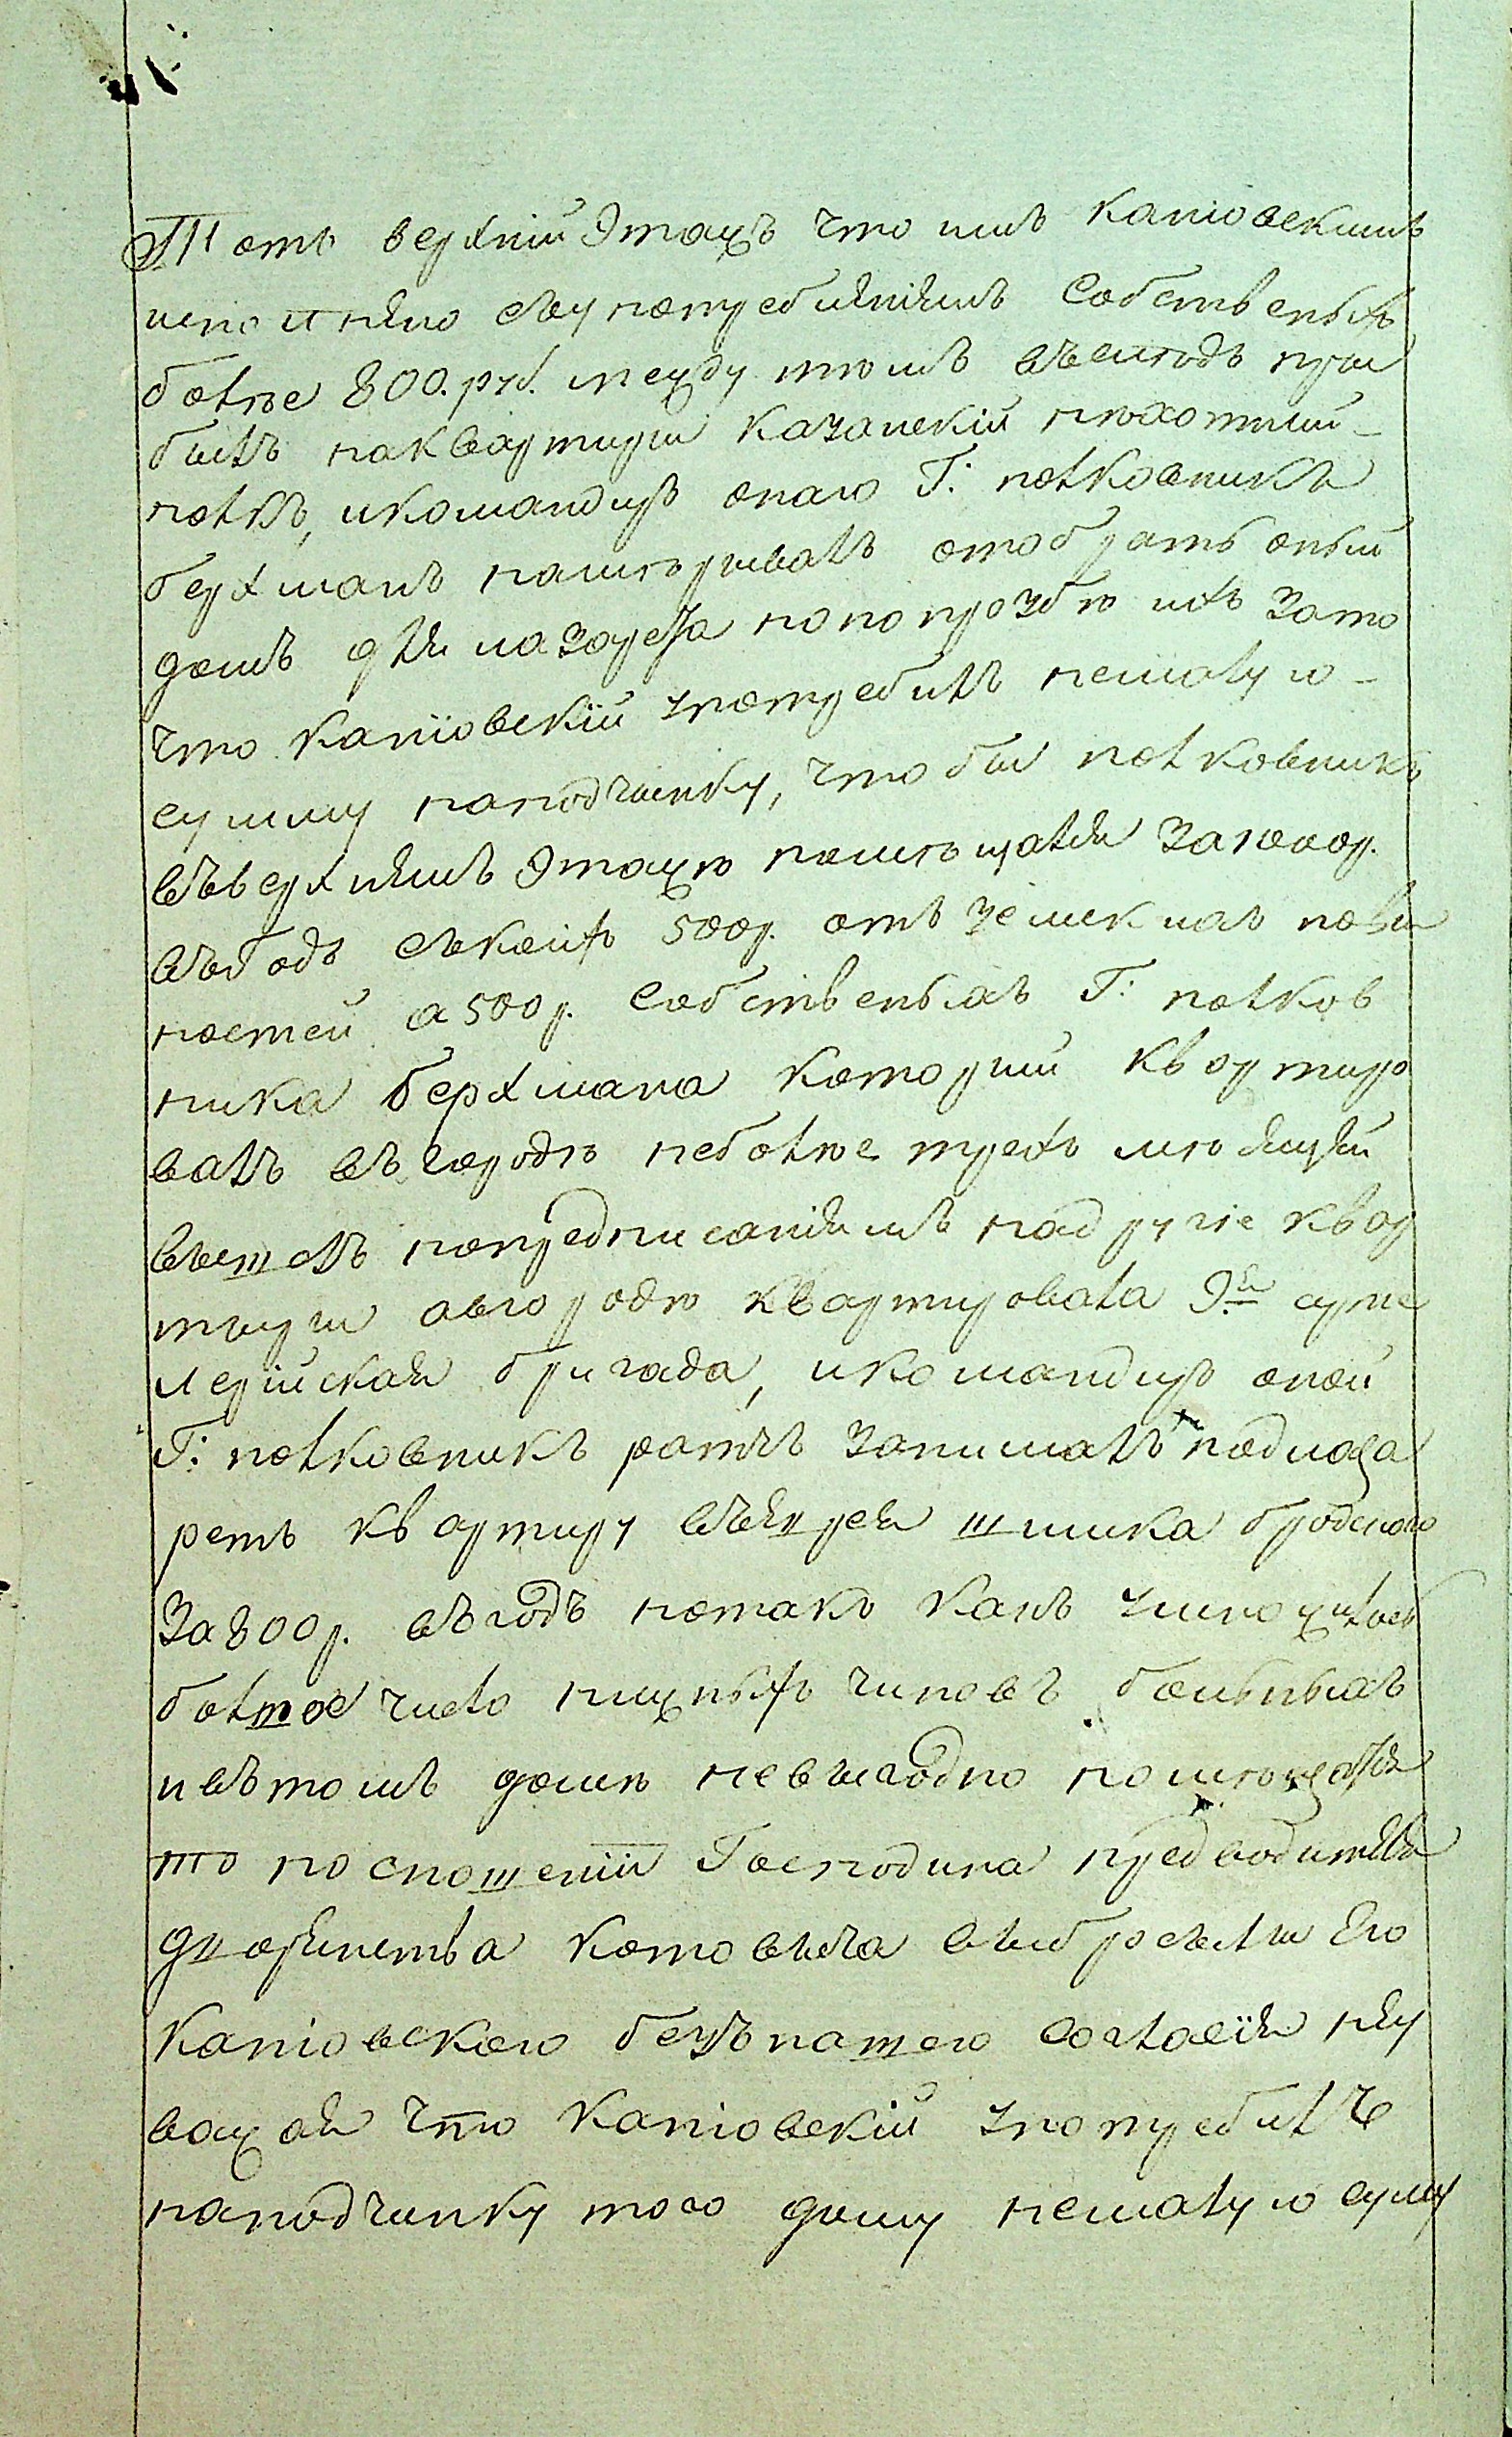 Тотъ верхній Этажъ что имъ Каніовскимъ
исполнено съ употребленіемъ Собственныхъ
более 800. руб. между темъ въ городъ при
былъ наквартиры Казанскій пѣхотный
полкъ, икомандиръ онаго Г: полковникъ
берхманъ намѣривалъ отобрать оный
домъ для лазарета но попрозбѣ ихъ Зато
что Каніовскій употребилъ немалую
сумму напочинку, чтобы полковникъ
въверхнемъ Этажѣ помѣщался За1000р.
въгодъ съкоихъ 500р. отъ Земскихъ пови
ностей а 500р. Собственныхъ Г: полков
ника берхмана который квартиро
валъ въгородѣ неболѣе трехъ мѣсяцей
вышелъ попредписаніямъ надругіе квар
тиры авгородѣ квартировала 9я арти
лерійская бригада, икомандиръ оной
Г: полковникъ ратчъ Занималъ подлаза
ретъ квартиру въеврея шмика бродского
За800р. въгодъ нотакъ какъ умножилось
болшое число нижныхъ чиновъ больныхъ
ивътомъ домѣ невыгодно помѣщатся
то посношеніи Господина предводителя
дворянства Котовича выбросили Его
Каніовского безънашего согласія неу
важая что Каніовскій употребилъ
напочинку того дому немалую суму